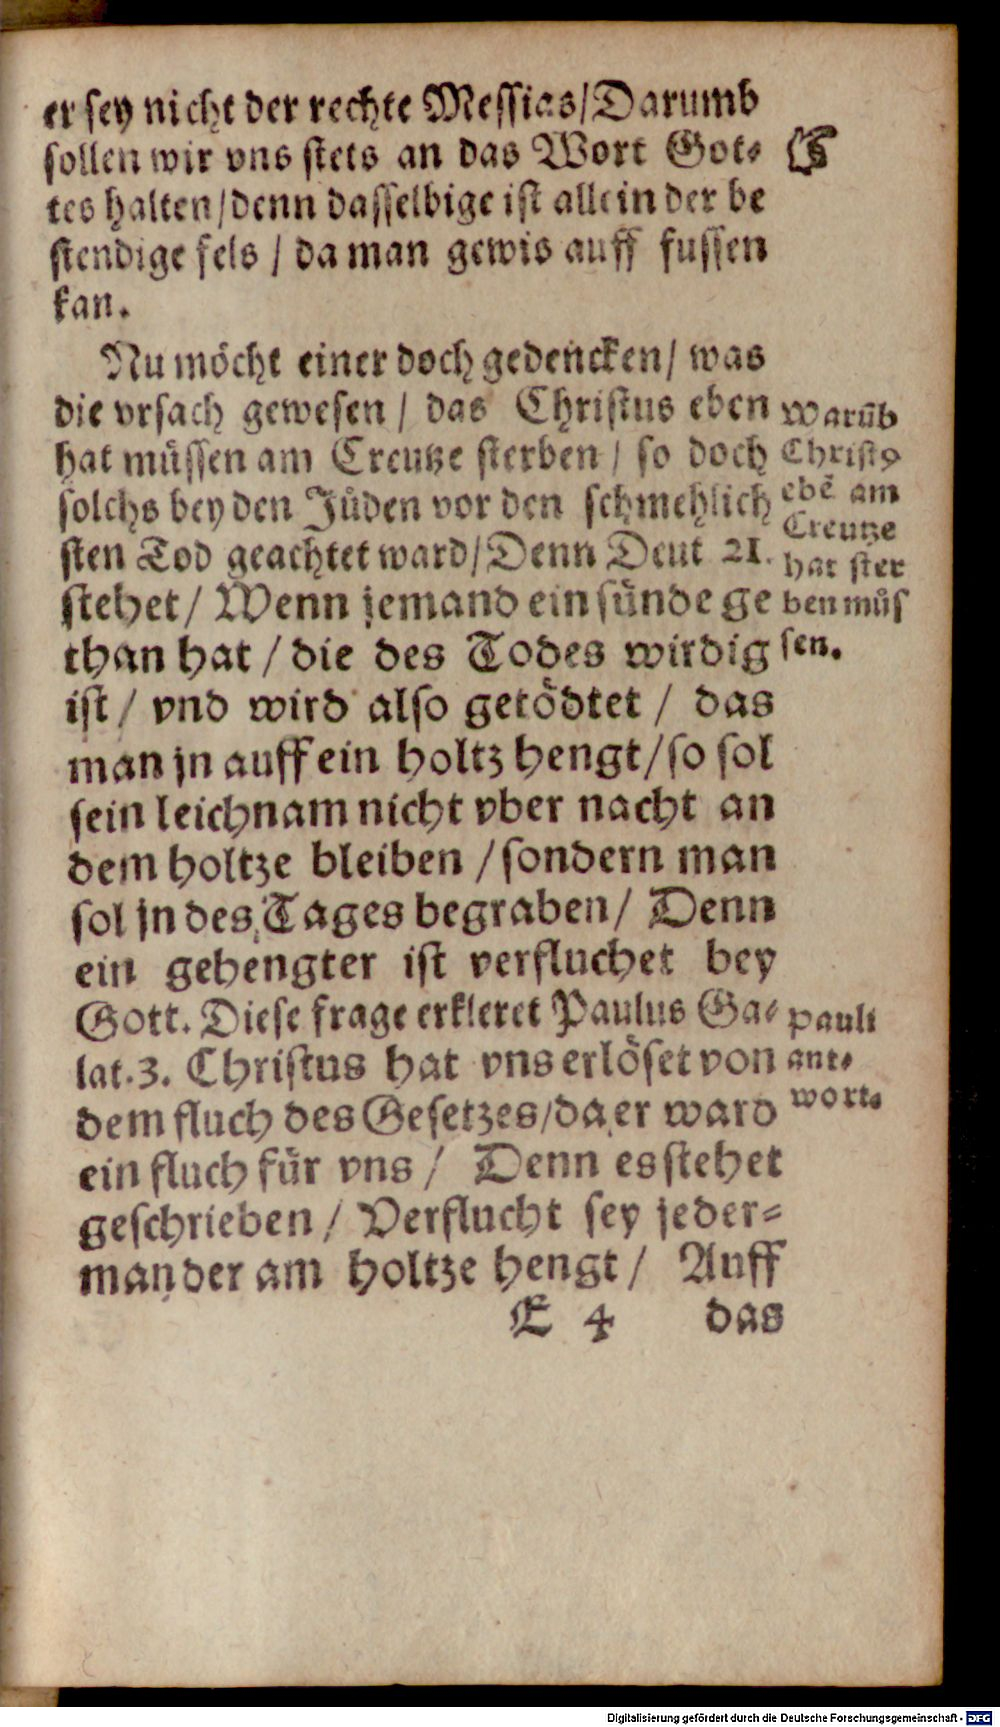 er sey nicht der rechte Messias/Darumb
sollen wir vns stets an das Wort Got-
tes halten/denn dasselbige ist allein der be
stendige fels / da man gewis auff fussen
kan.
Nu möcht einer doch gedencken/ was
die vrsach gewesen / das Christus eben
hat müssen am Creutze sterben / so doch
solchs bey den Jüden vor den schmehlich
sten Tod geachtet ward/Denn Deut 21.
stehet/ Wenn jemand ein sünde ge
than hat / die des Todes wirdig
ist / vnd wird also getödtet / das
man jn auff ein holtz hengt/so sol
sein leichnam nicht vber nacht an
dem holtze bleiben /sondern man
sol jn des Tages begraben/ Denn
ein gehengter ist verfluchet bey
Gott. Diese frage erkleret Paulus Ga-
lat.3. Christus hat vns erlöset von
dem fluch des Gesetzes/da er ward
ein fluch für vns / Denn es stehet
geschrieben / Verflucht sey jeder-
man der am holtze hengt / Auff
E 4 das
Warūb
Christꝰ
ebē am
Creutze
hat ster
ben müs
sen.
Pauli
ant-
wort.
Digitalisierung gefördert durch die Deutsche Forschungsgemeinschaft - DFG